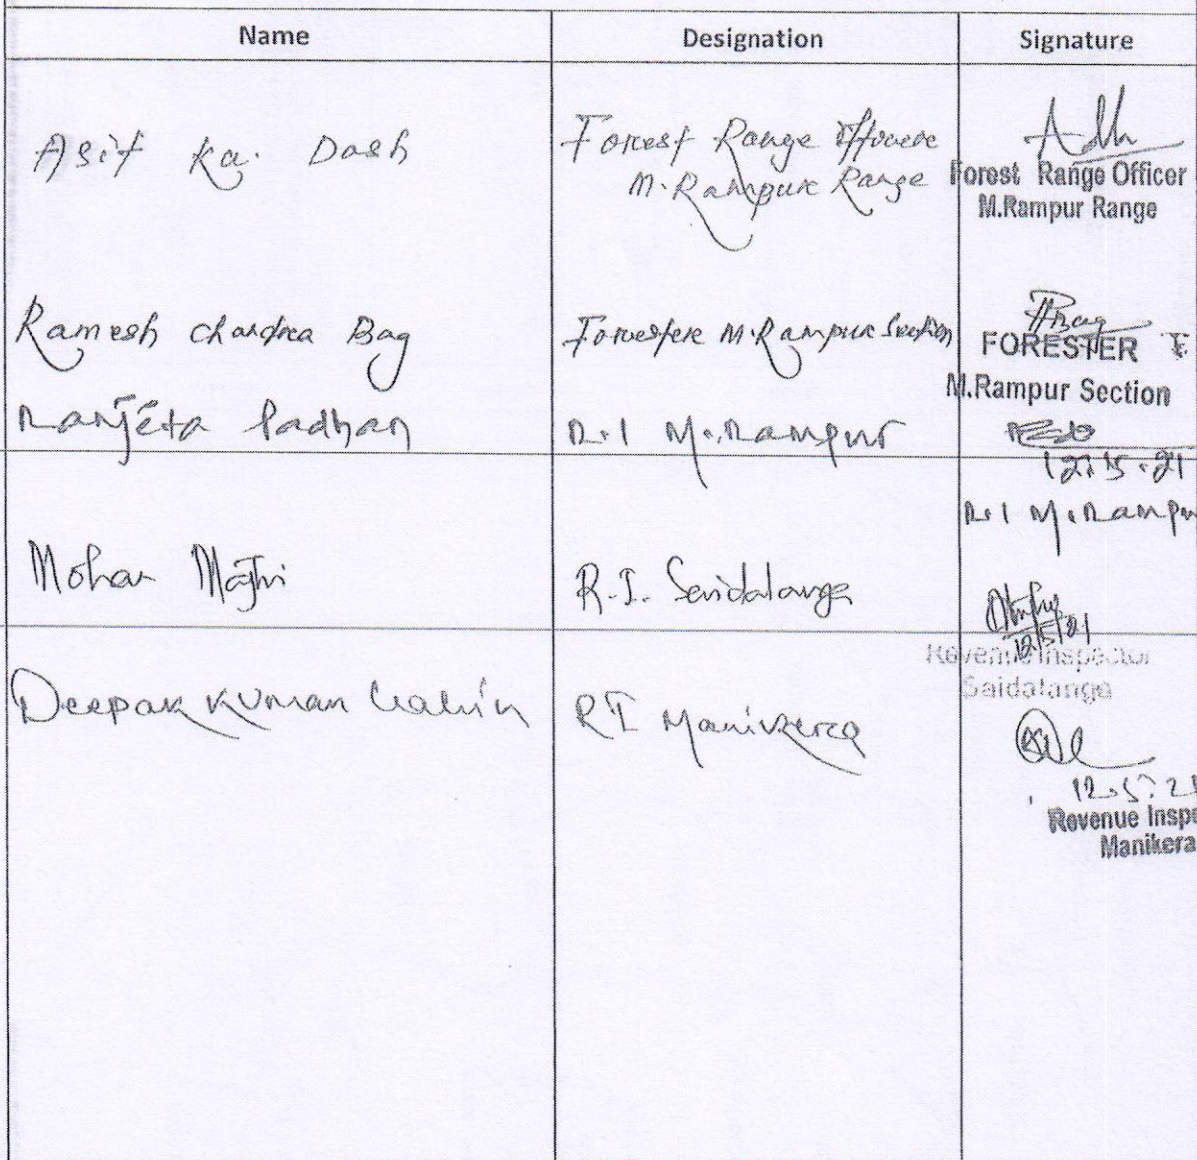 Name Designation Signature
Asit Ku. Dash
Forest Range Officer
M. Rampur Range
Forest Range Officer
M.Rampur Range
Ramesh Chandra Bag
Forester M. Rampur Section
FORESTER
M.Rampur Section
Ranjeta Padhan
R.I M. Rampur
12.5.21
R.I M. Rampur
Mohan Majhi
R.I. Saidalanga
12/5/21
Revenue Inspector
Saidalanga
Deepak Kumar
RI Manikera
12.5.21
Revenue Inspe
Manikera